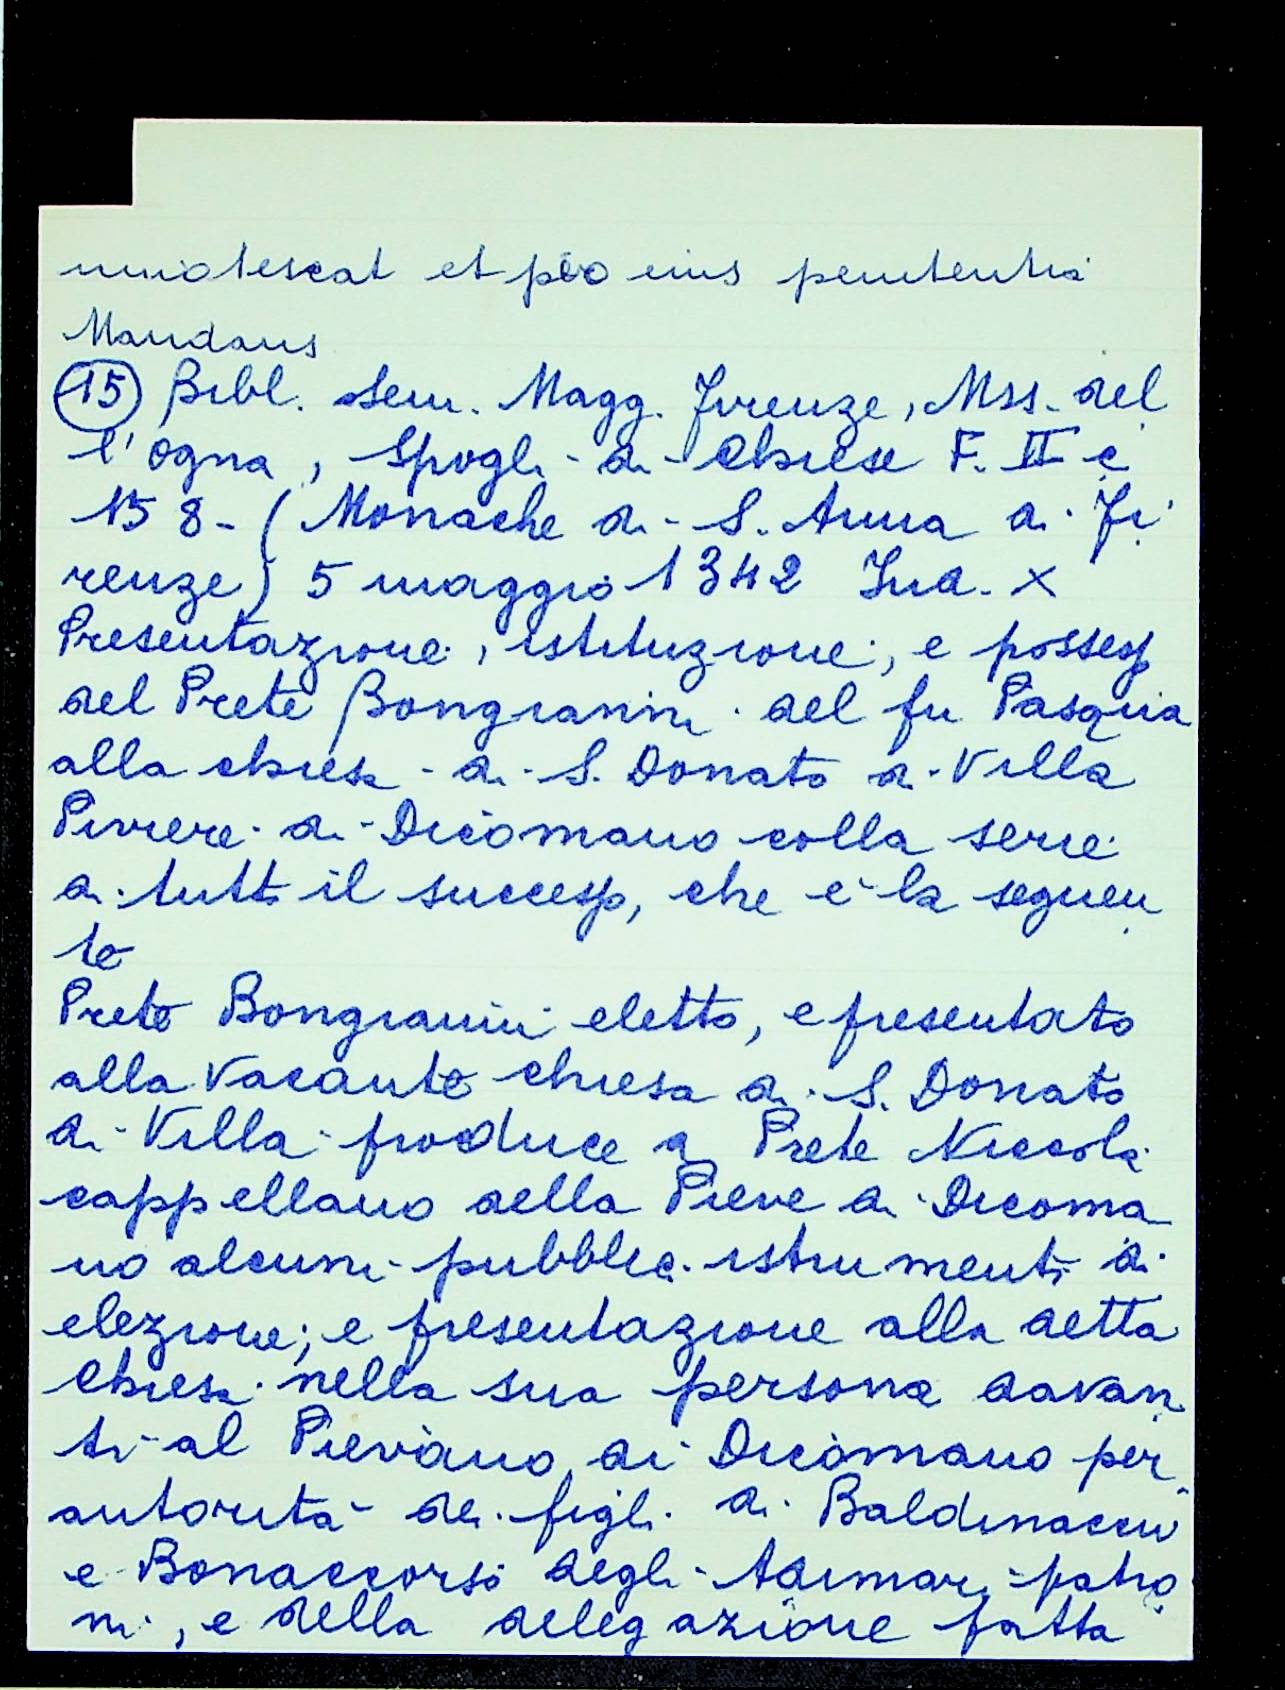 innotescat et pro eius penitentia
Mandans
15 Bibl. Sem. Magg. Firenze, Mss. del
l'Ogna, Spogli di Chiese F. II c
158 - (Monache di S. Anna di Fi
renze) 5 maggio 1342 Ind. X
Presentazione, istituzione, e possesso
del Prete Bongianni del fu Pasquia
alla chiesa di S. Donato a Villa
Piviere di Dicomano colla serie
di tutto il successo, che è la seguen
te
Prete Bongianni eletto, e presentato
alla vacante chiesa di S. Donato
di Villa produce a Prete Niccola
cappellano della Pieve di Dicoma
no alcuni pubblici istrumenti di
elezione, e presentazione alla detta
Chiesa nella sua persona davan
ti al Pievano di Dicomano per
autorità dei figli di Baldinaccio
e Bonaccorso degli Adimari patro
ni, e della delegazione fatta